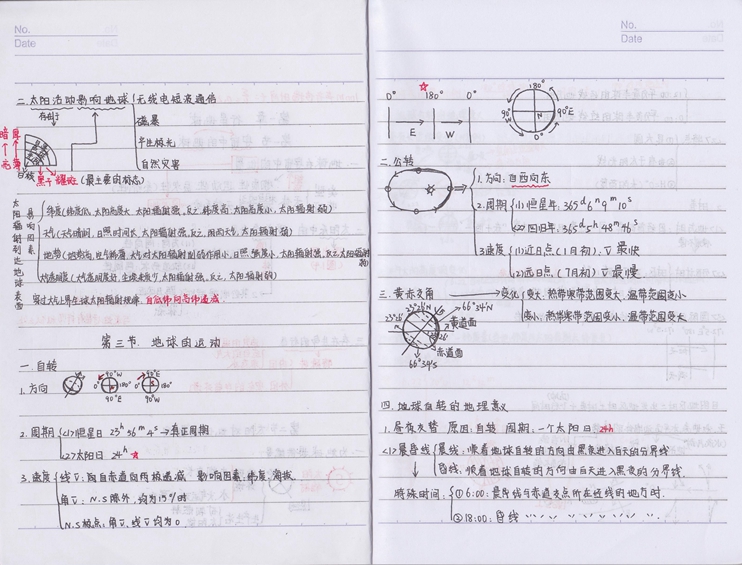 No.
Date
二.太阳活动影响地球
无线电短波通信
磁暴
产生极光
自然灾害
暗 厚
亮 薄
黑子 耀斑(最主要的标志)
太阳辐射到达地球表面
影响因素
纬度(纬度低,太阳高度大,太阳辐射强,反之,纬度高,太阳高度小,太阳辐射弱)
天气(天气晴朗,日照时间长,太阳辐射强,反之,阴雨天气,太阳辐射弱)
地势(地势高,空气稀薄,大气对太阳辐射削弱作用小,日照 太阳辐射强,反之,太阳辐射弱)
大气透明度(大气透明度好 太阳辐射强,反之,太阳辐射弱)
穿过大气上界生球太阳辐射规律:自低纬向高纬递减.
第三节.地球的运动
一.自转
1.方向
0° 90°W 180° 90°E
0° 90°E 180° 90°W
2.周期
(1)恒星日 23h 56m 4s→真正周期
(2)太阳日 24h ☆
3.速度
线v:向自赤道向两极递减 影响因素:纬度,海拔
角v:N.S除外,均为15°/时
N.S极点:角v,线v均为0.
No.
Date
0° 180° 0°
E W
180°
W N 90°E
0°
二.公转
1.方向:自西向东
2.周期
(1)恒星年:365d 6h 9m 10s
(2)回归年:365d 5h 48m 46s
3.速度
(1)近日点(1月初):v最快
(2)远日点(7月初)v最慢
三.黄赤交角
变化
变大:热带寒带范围变大,温带范围变小
变小:热带寒带范围变小,温带范围变大
23°26′N
66°34′N
23°26′
黄道面
赤道面
66°34′S
四.地球自转的地理意义
1.昼夜交替 原因:自转 周期:一个太阳日24h
(1)晨昏线
晨线:顺着地球自转的方向由黑夜进入白天的分界线
昏线:顺着地球自转的方向由白天进入黑夜的分界线
特殊时间:
①6:00:晨线与赤道交点所在经线的地方时.
②18:00:昏线 〃 〃 〃